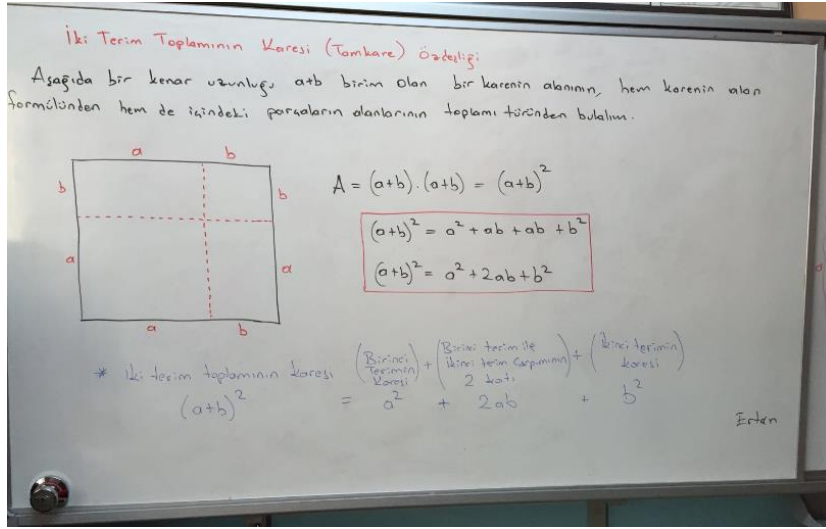 İki Terim Toplamının Karesi (Tamkare) Özdeşliği
Aşağıda bir kenar uzunluğu a+b birim olan bir karenin alanının, hem karenin alan
formülünden hem de içindeki parçaların alanlarının toplamı türünden bulalım.
a b
b b
a a
a b
A = (a+b).(a+b) = (a+b)²
(a+b)² = a² + ab + ab + b²
(a+b)² = a² + 2ab + b²
* İki terim toplamının karesi (Birinci Terimin Karesi) + (Birinci terim ile ikinci terim çarpımının 2 katı) + (İkinci terimin karesi)
(a+b)² = a² + 2ab + b²
Ertan